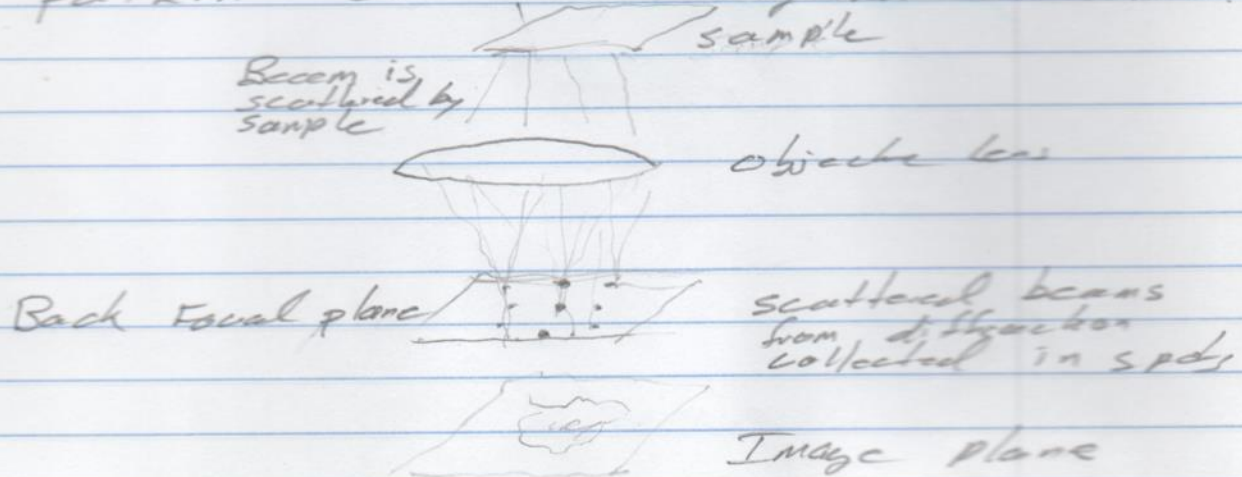 sample
Beam is
scattered by
sample
objective lens
Back Focal plane
scattered beams
from diffraction
collected in spots
Image plane